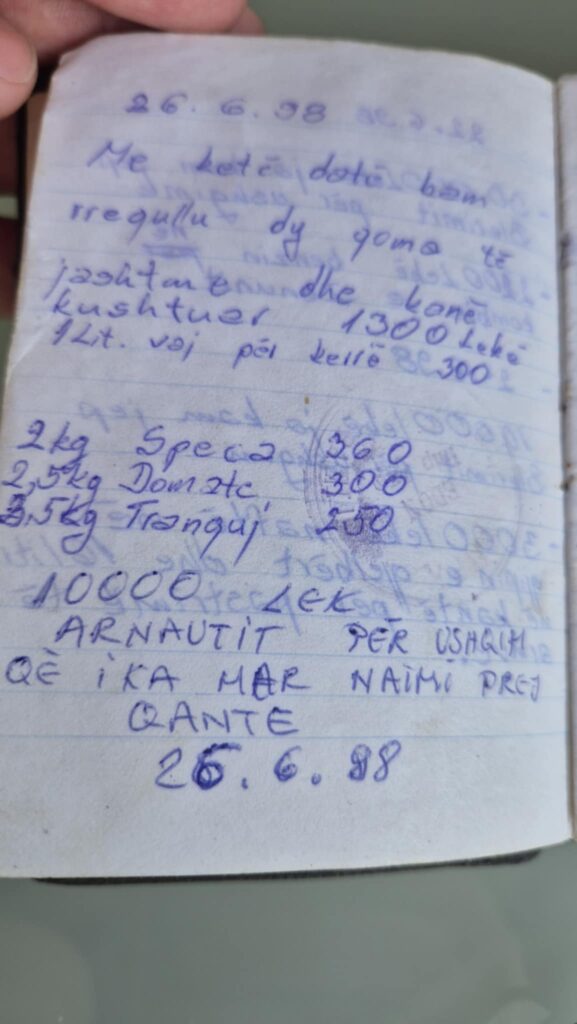 26. 6. 98
Me ketë datë kam
rregullu dy goma të
jashtme dhe kanë
kushtuar 1300 Lekë
1 Lit. vaj për kerrë 300
2kg Speca 360
2,5kg Domate 300
3,5kg Tranguj 250
10000 LEK
ARNAUTIT PËR USHQIM
QË I KA MAR NAIMI PREJ
QANTE
26. 6. 98